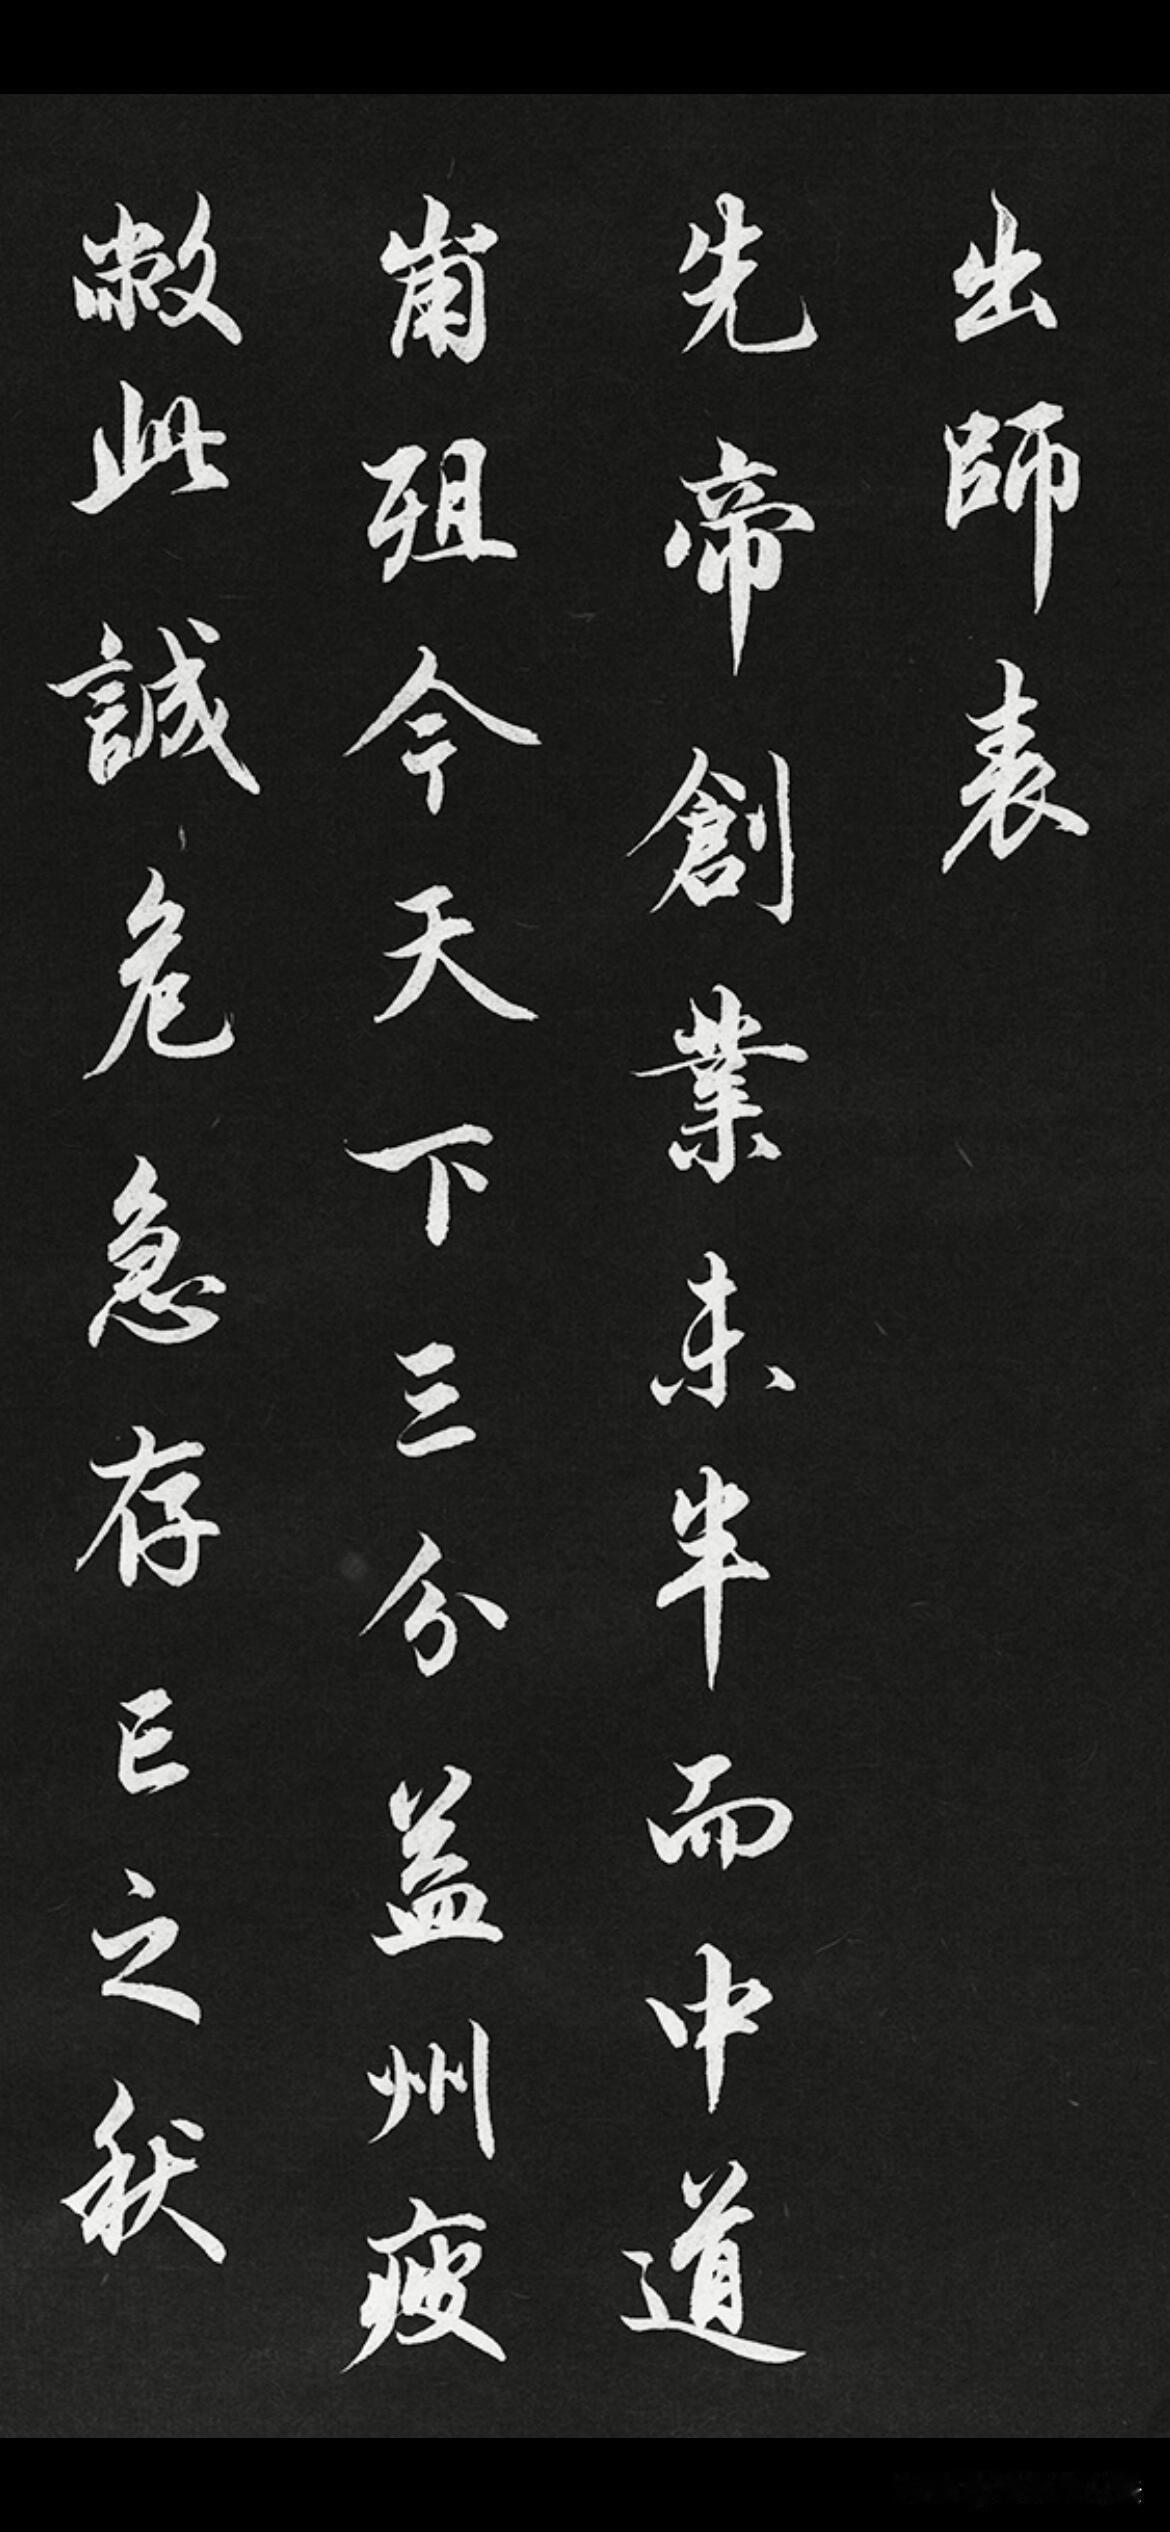 出師表
先帝創業未半而中道
崩殂今天下三分益州疲
敝此誠危急存亡之秋